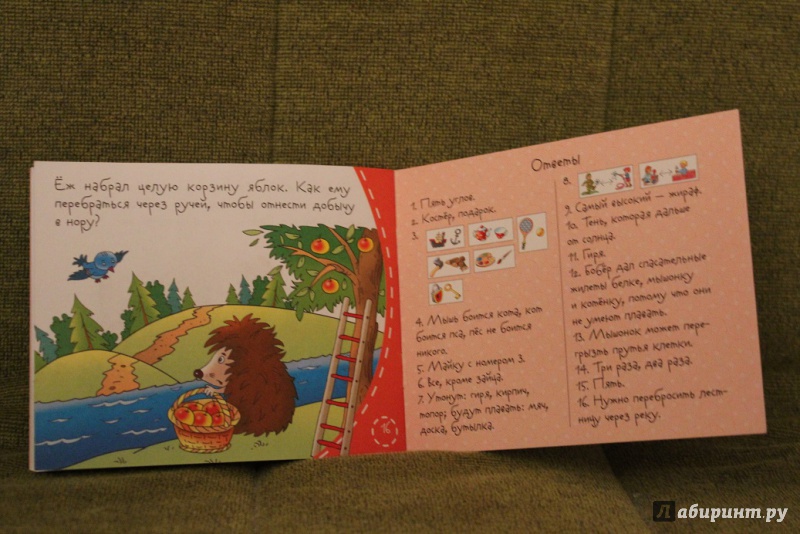 Ёж набрал целую корзину яблок. Как ему
перебраться через ручей, чтобы отнести добычу
в нору?
16
Ответы
1. Пять углов.
2. Костёр, подарок.
3.
4. Мышь боится кота, кот
боится пса, пёс не боится
никого.
5. Майку с номером 3.
6. Все, кроме зайца.
7. Утонут: гиря, кирпич,
топор; будут плавать: мяч,
доска, бутылка.
8.
9. Самый высокий — жираф.
10. Тень, которая дальше
от солнца.
11. Гиря.
12. Бобёр дал спасательные
жилеты белке, мышонку
и котёнку, потому что они
не умеют плавать.
13. Мышонок может пере-
грызть прутья клетки.
14. Три раза, два раза.
15. Пять.
16. Нужно перебросить лест-
ницу через реку.
Лабиринт.ру